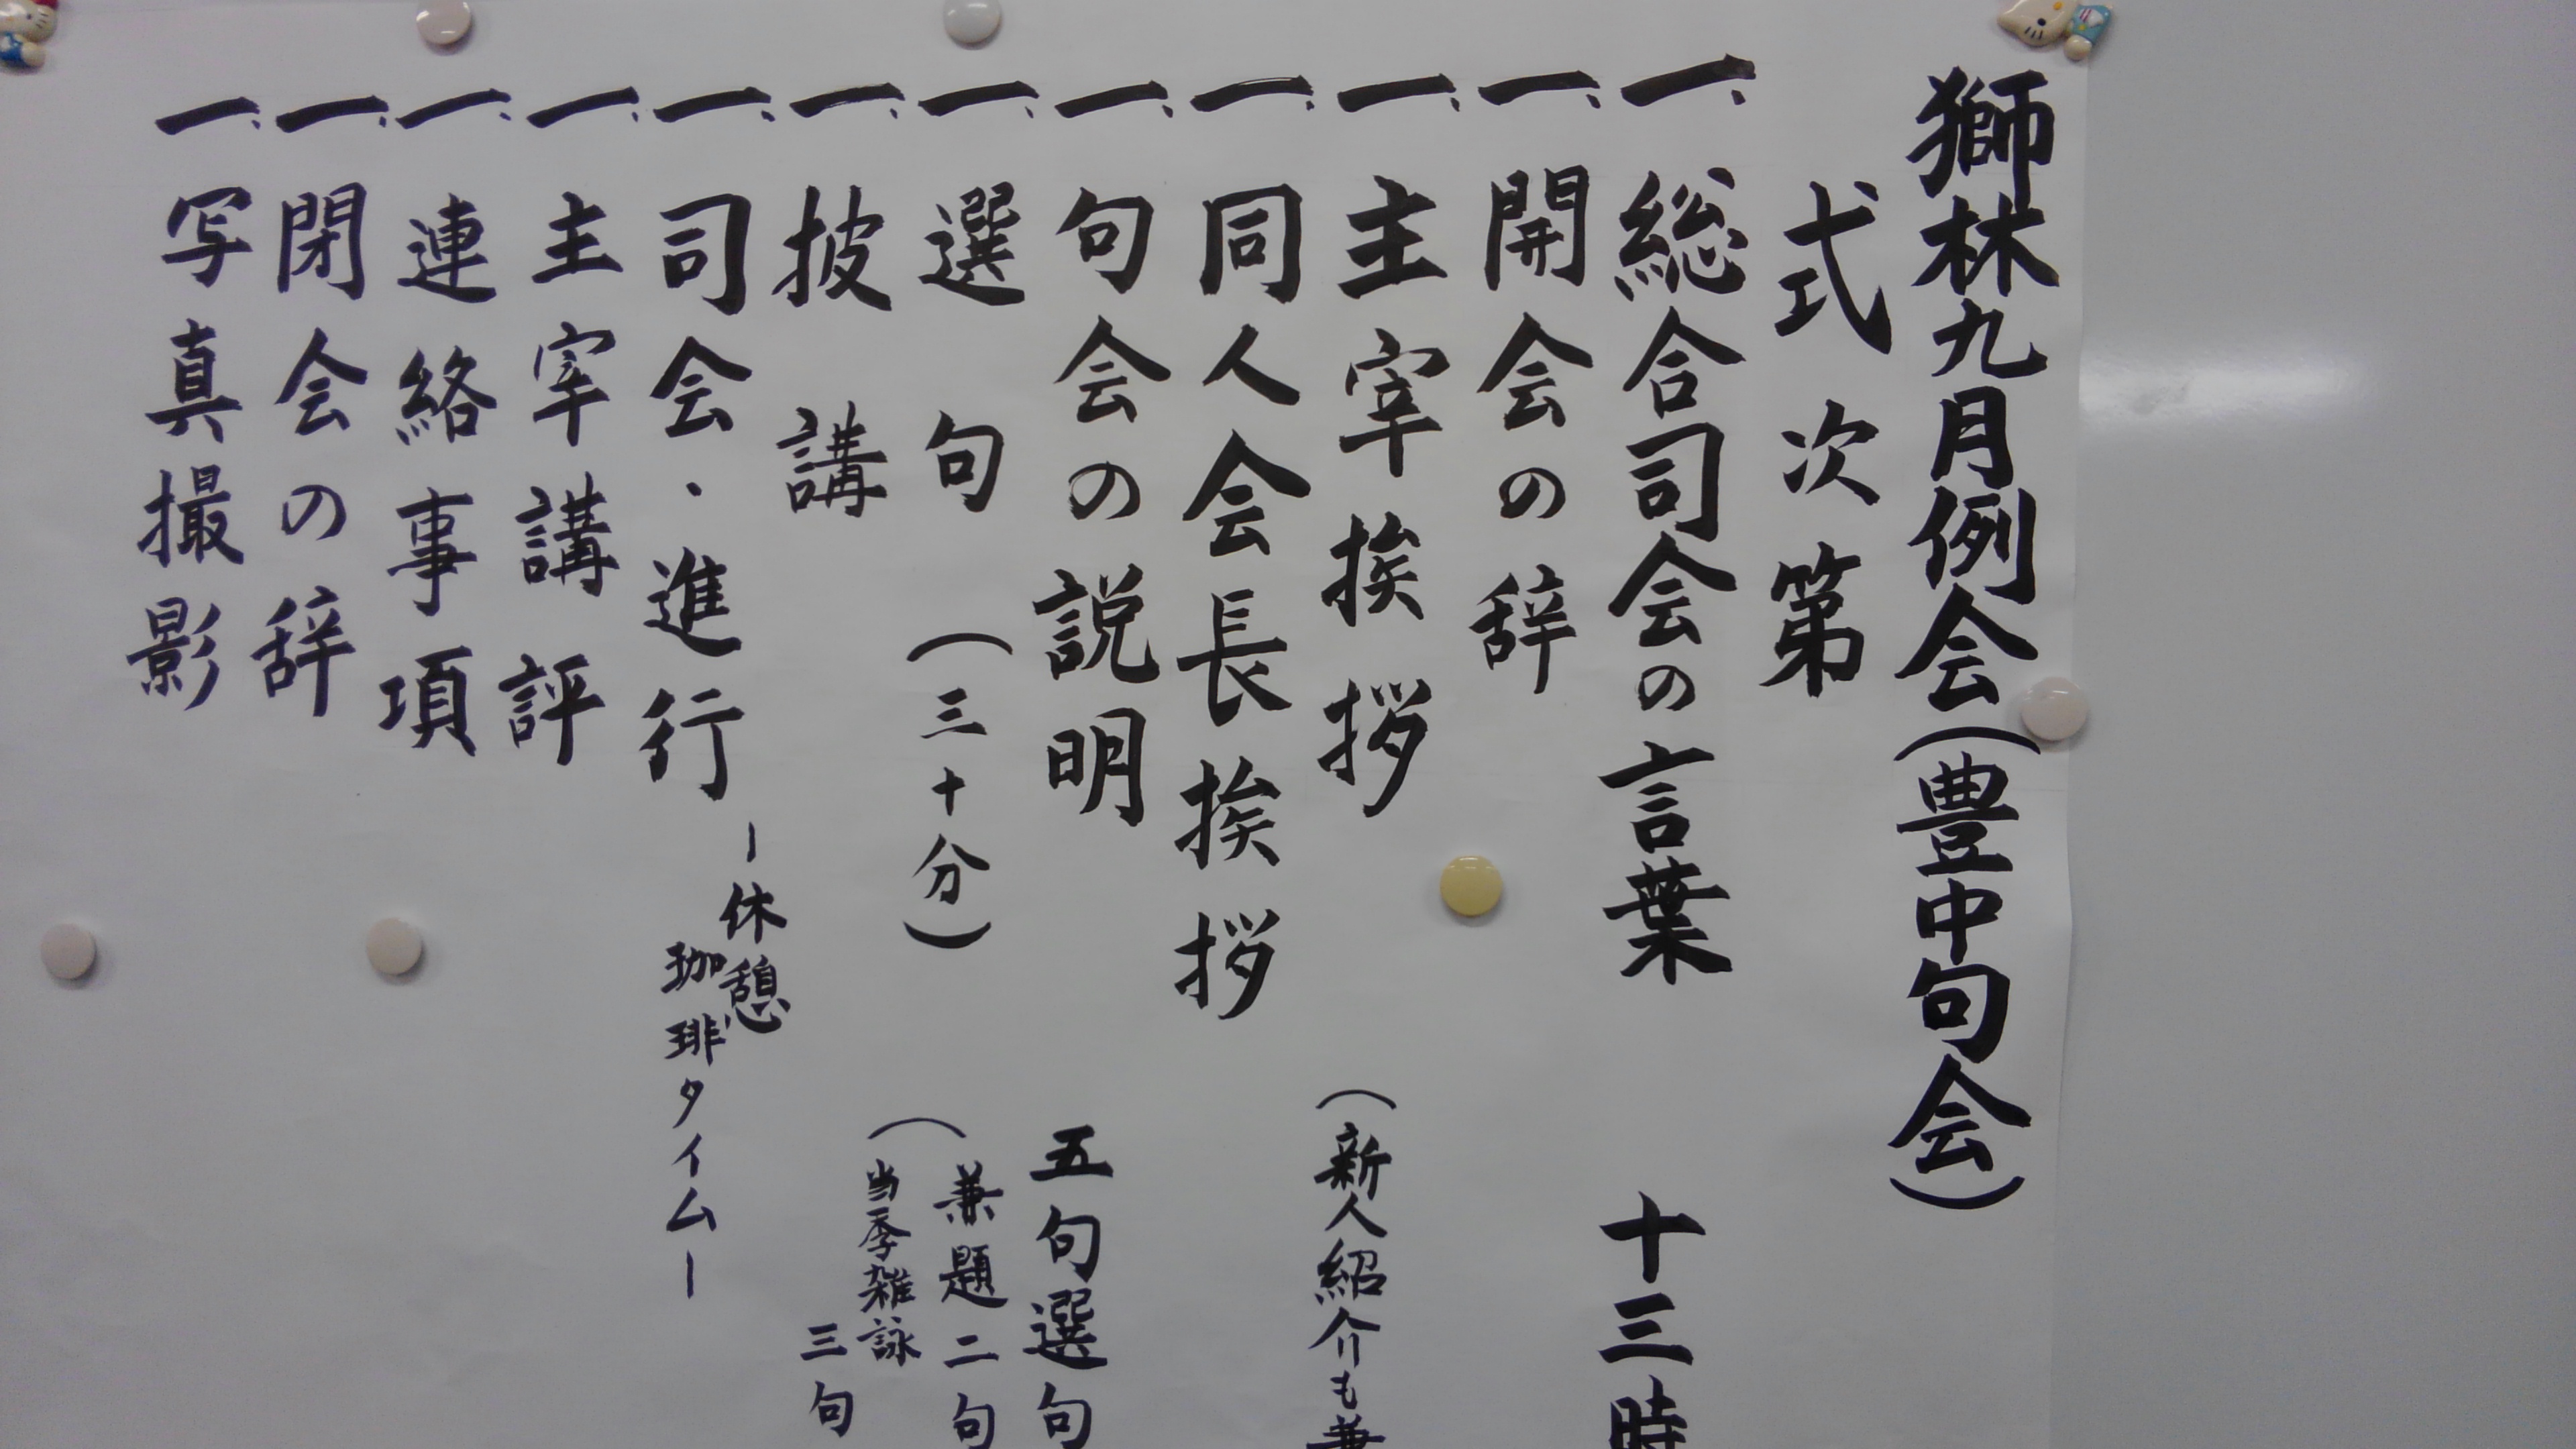 獅林九月例会(豊中句会)
式次第
一、総合司会の言葉 十三時
一、開会の辞
一、主宰挨拶 (新人紹介も兼
一、同人会長挨拶
一、句会の説明 五句選句
(兼題二句
当季雑詠
三句
一、選句(三十分)
一、披講
ー休憩
珈琲タイムー
一、司会・進行
一、主宰講評
一、連絡事項
一、閉会の辞
一、写真撮影